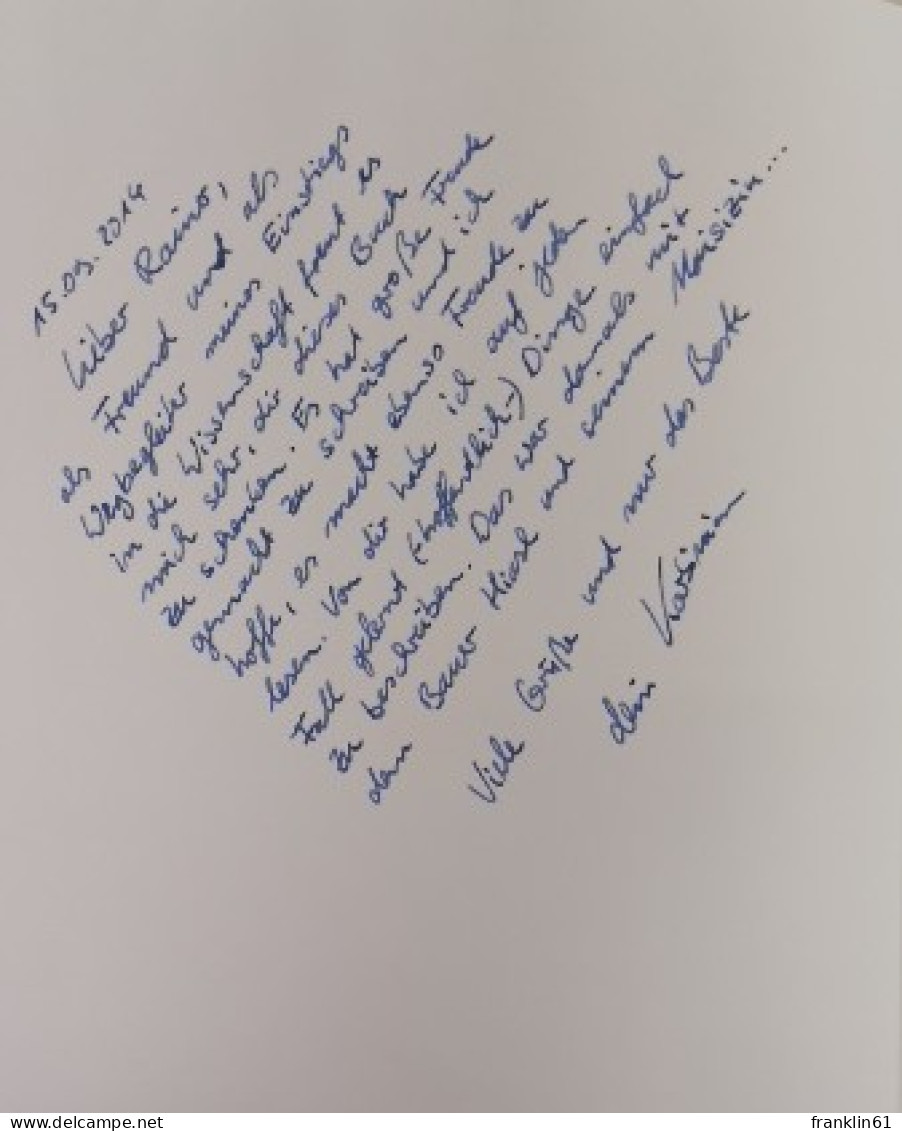 15.09.2014
Lieber Rainer,
als Freund und als
Wegbegleiter meines Einstiegs
in die Wissenschaft freut es
mich sehr, dir dieses Buch
zu schenken. Es hat große Freude
gemacht zu schreiben und ich
hoffe, es macht ebenso Freude zu
lesen. Von dir habe ich auf jeden
Fall gelernt (hoffentlich-) Dinge einfach
zu beschreiben. Das war damals mit
dem Bauer Hiasl und seinem
Viele Grüße und nur das Beste
dein
www.delcampe.net
franklin61